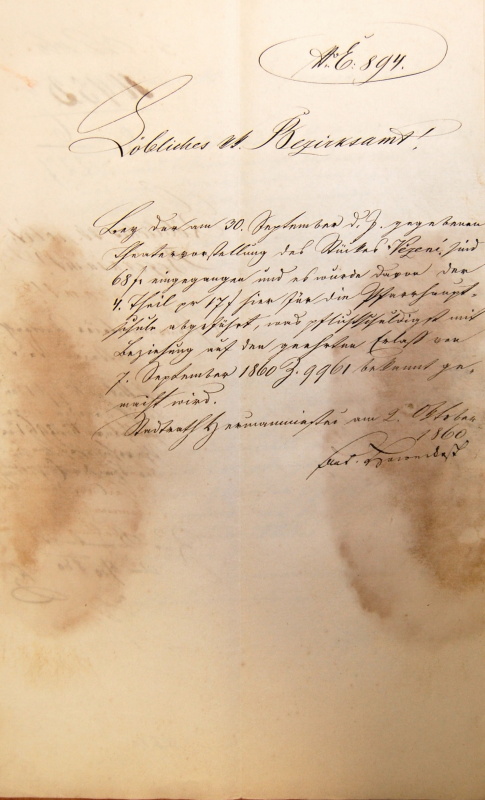 N. E. 894.
Löbliches kk. Bezirksamt!
Bey der am 30. September d. J. gegebenen
Theatervorstellung des Stückes "Vězeni" sind
68 f eingegangen und es wurde davon der
4. Theil pr 17 f hier für die Pfarrhaupt-
schule abgeführt, was pflichtschuldigst mit
Beziehung auf den geehrten Erlaß vom
7. September 1860 Z. 9961 bekannt ge-
macht wird.
Stadtrath Hermannmiestec am 2. Oktober
1860